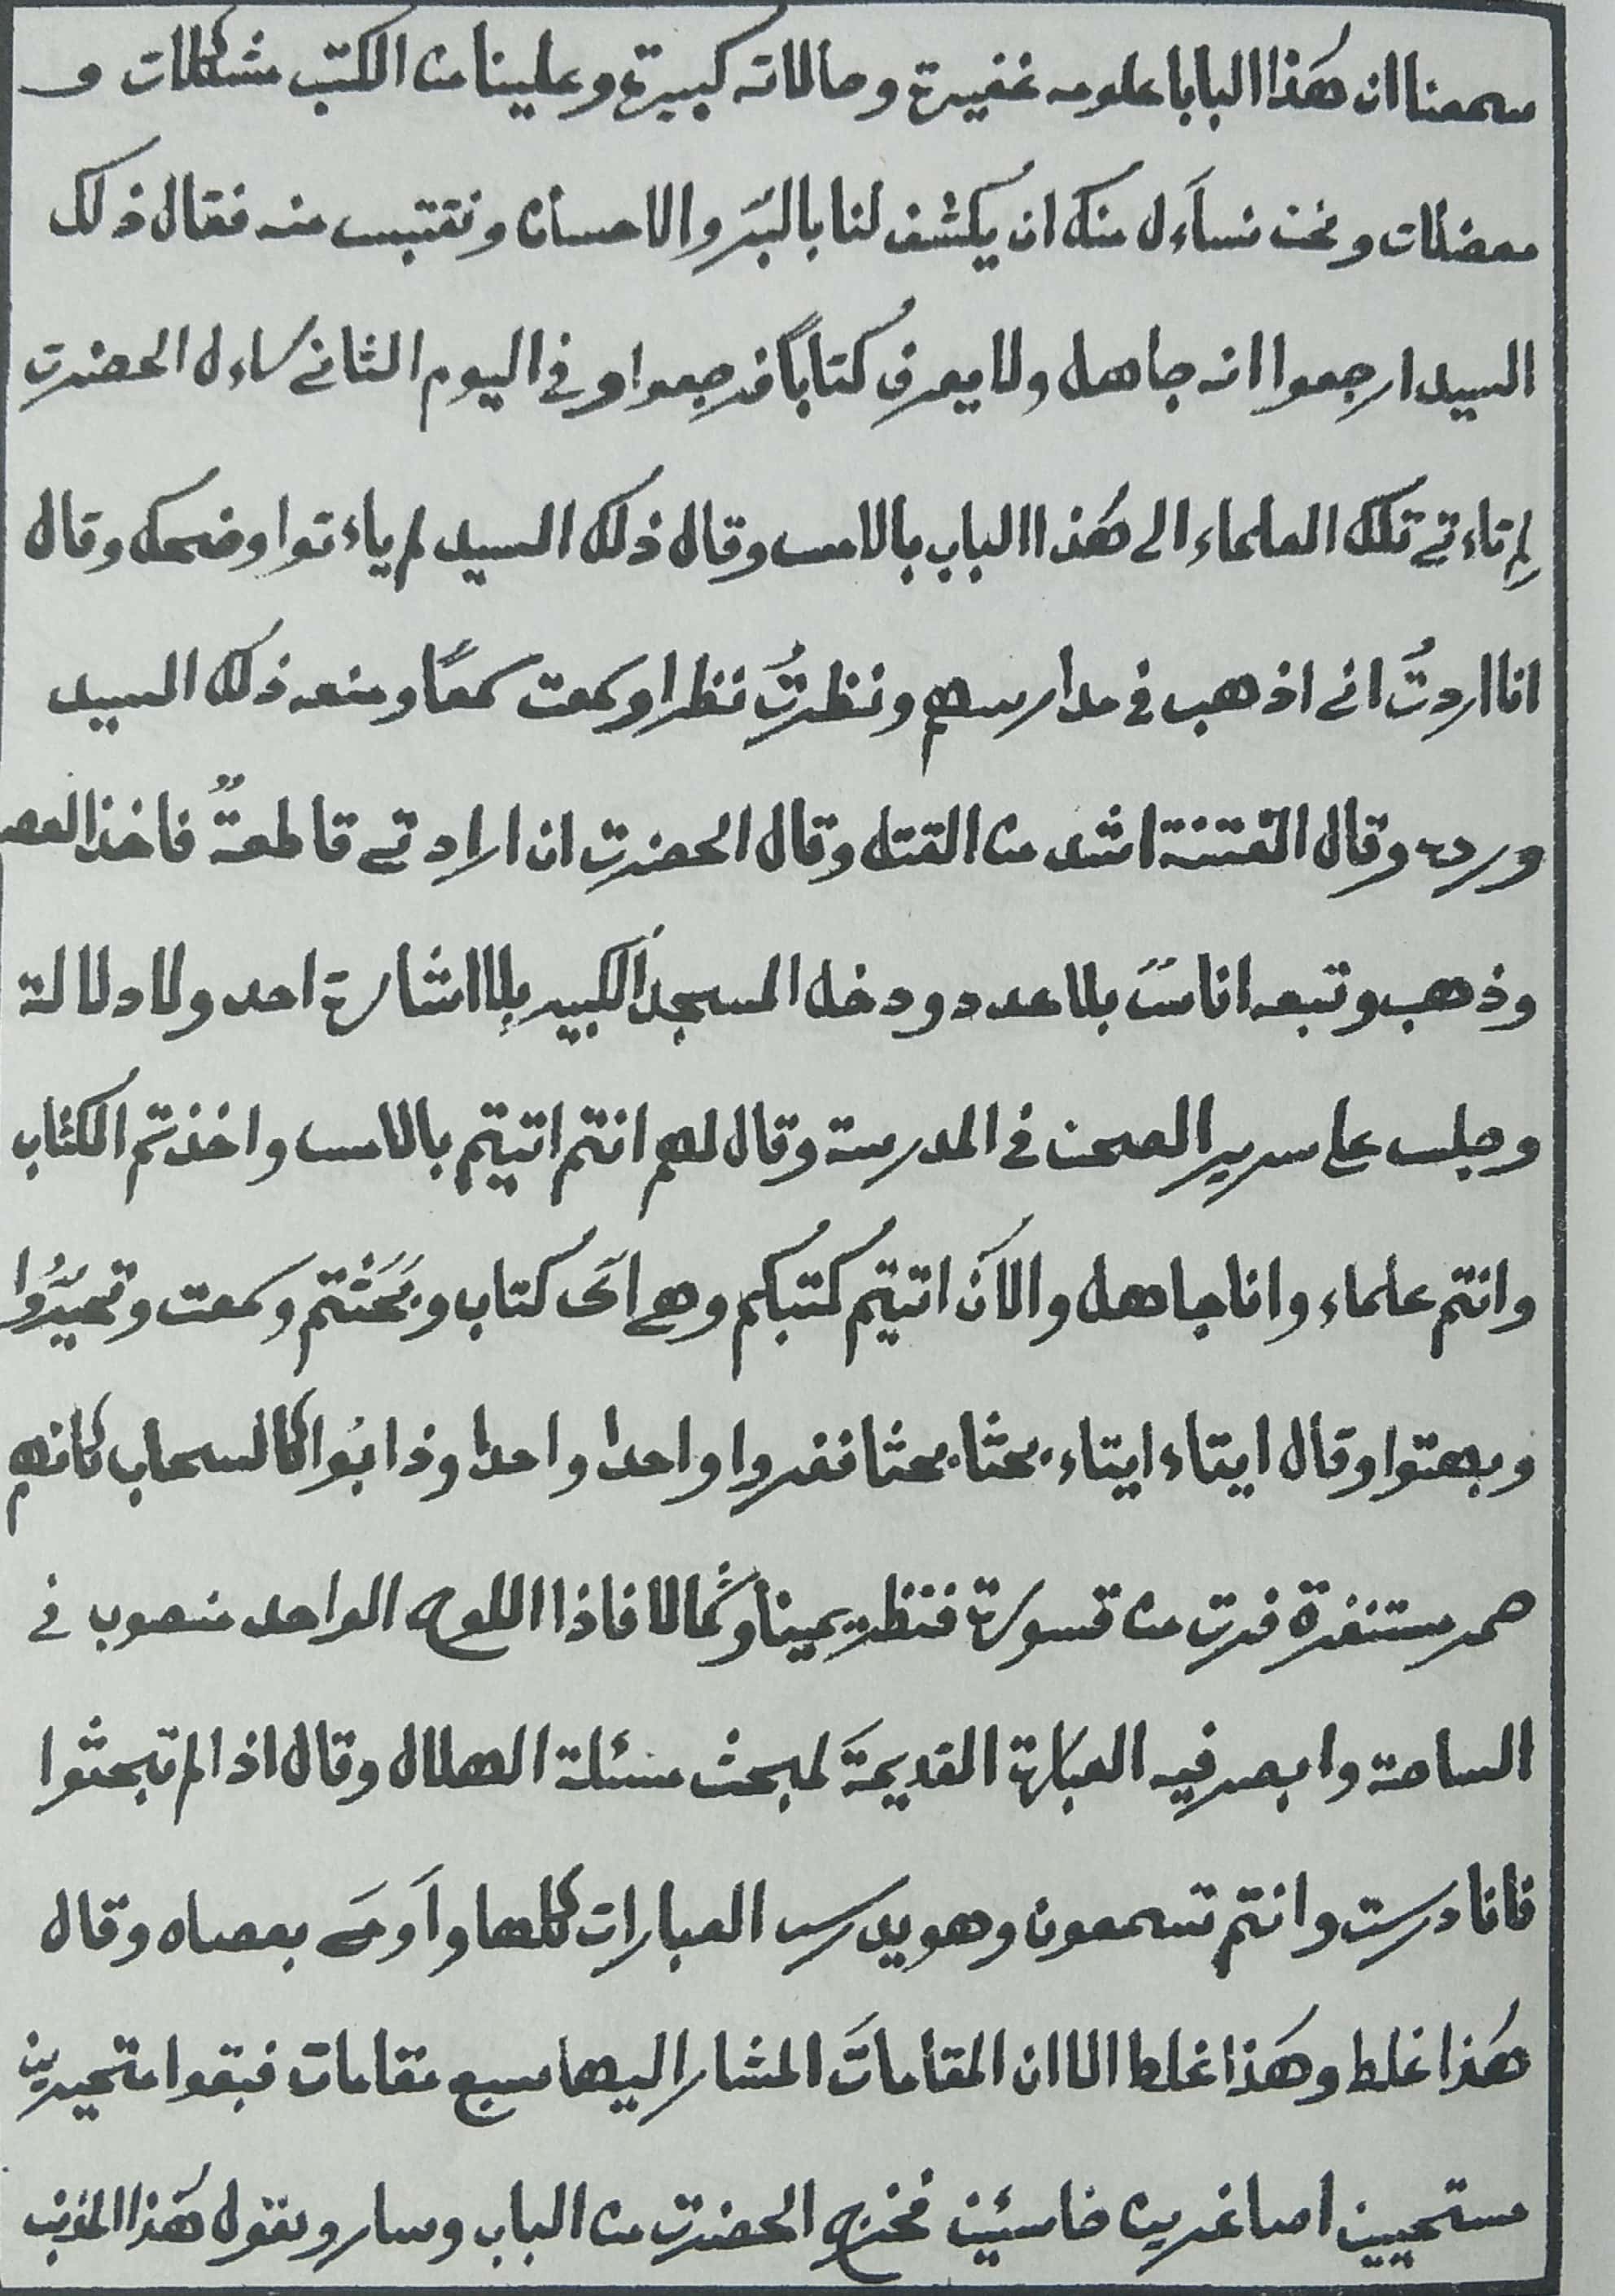 سمعنا ان هٰذا البابا علومه غفيرة وحالاته كبيرة وعلينا من الكتب مشكلات و
معضلات ونحن نساَءل منك ان يكشف لنا بالبّر والاحسان ونقتبس منه فقال ذلك
السيد ارجعوا انه جاهل ولا يعرف كتاباً فرجعوا وفي اليوم الثاني ساءل الحضرت
لِم تاءتي تلك العلماء الى هٰذا الباب بالامس وقال ذلك السيد لم ياءتوا وضحك وقال
انا اردتُ اني اذهب في مدارسهم ونظرتُ نظرا وسمعت سمعًا ومنعه ذلك السيد
ورده وقال الفتنة اشد من القتل وقال الحضرت ان ارادتي قاطعةٌ فاخذ العصا
وذهب وتبعه اناسٌ بلا عدد ودخل المسجدَ الكبير بِلا اشارة احد ولا دلالة
وجلس على سرير الصحن في المدرسة وقال لهم انتم اتيتم بالامس واخذتم الكتاب
وانتم علماء وانا جاهل والآن اتيتم كتبكم وهي اَى كتاب وبَحَثْتم وسمعت وتحيَّرُوا
وبهتوا وقال ايتاء ايتاء بحثا بحثا نفروا واحدا واحدا وذابُوا كالسحاب كانهم
حمر مستنفرة فرت من قسورة فنظر يميناً وشمالا فاذا اللوح الواحد منصوب في
الساحة وابصر فيه العبارة القديمةَ لمبحث مسئلة الهلال وقال اذا لم تبحثوا
فانا درست وانتم تسمعون وهو يدرس العبارات كلها واَومَى بعصاه وقال
هٰذا غلط وهٰذا غلط الا ان المقاماتَ المشار اليها سبع مقامات فبقوا متحيرين
مستحيين اصاغرين خاسئين فخرج الحضرت من الباب وسار ويقول هٰذا المذنب